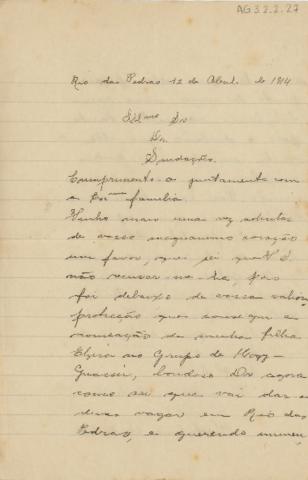 AG 3.2.2.27
Rio das Pedras 12 de Abril de 1914
Illmo Sr
Dr.
Saudações.
Cumprimento-o juntamente com
a Exma familia.
Venho mais uma vez solicitar
de vosso magnanimo coração
um favor, que sei que V S
não recusar
foi debaixo de vossa valiosa
protecção que consegui a
nomeação de minha filha
Elzira no Grupo de Mogy-
Guassú, bondoso Dr agora
como sei que vai dar-se
duas vagas em Rio das
Pedras, e querendo